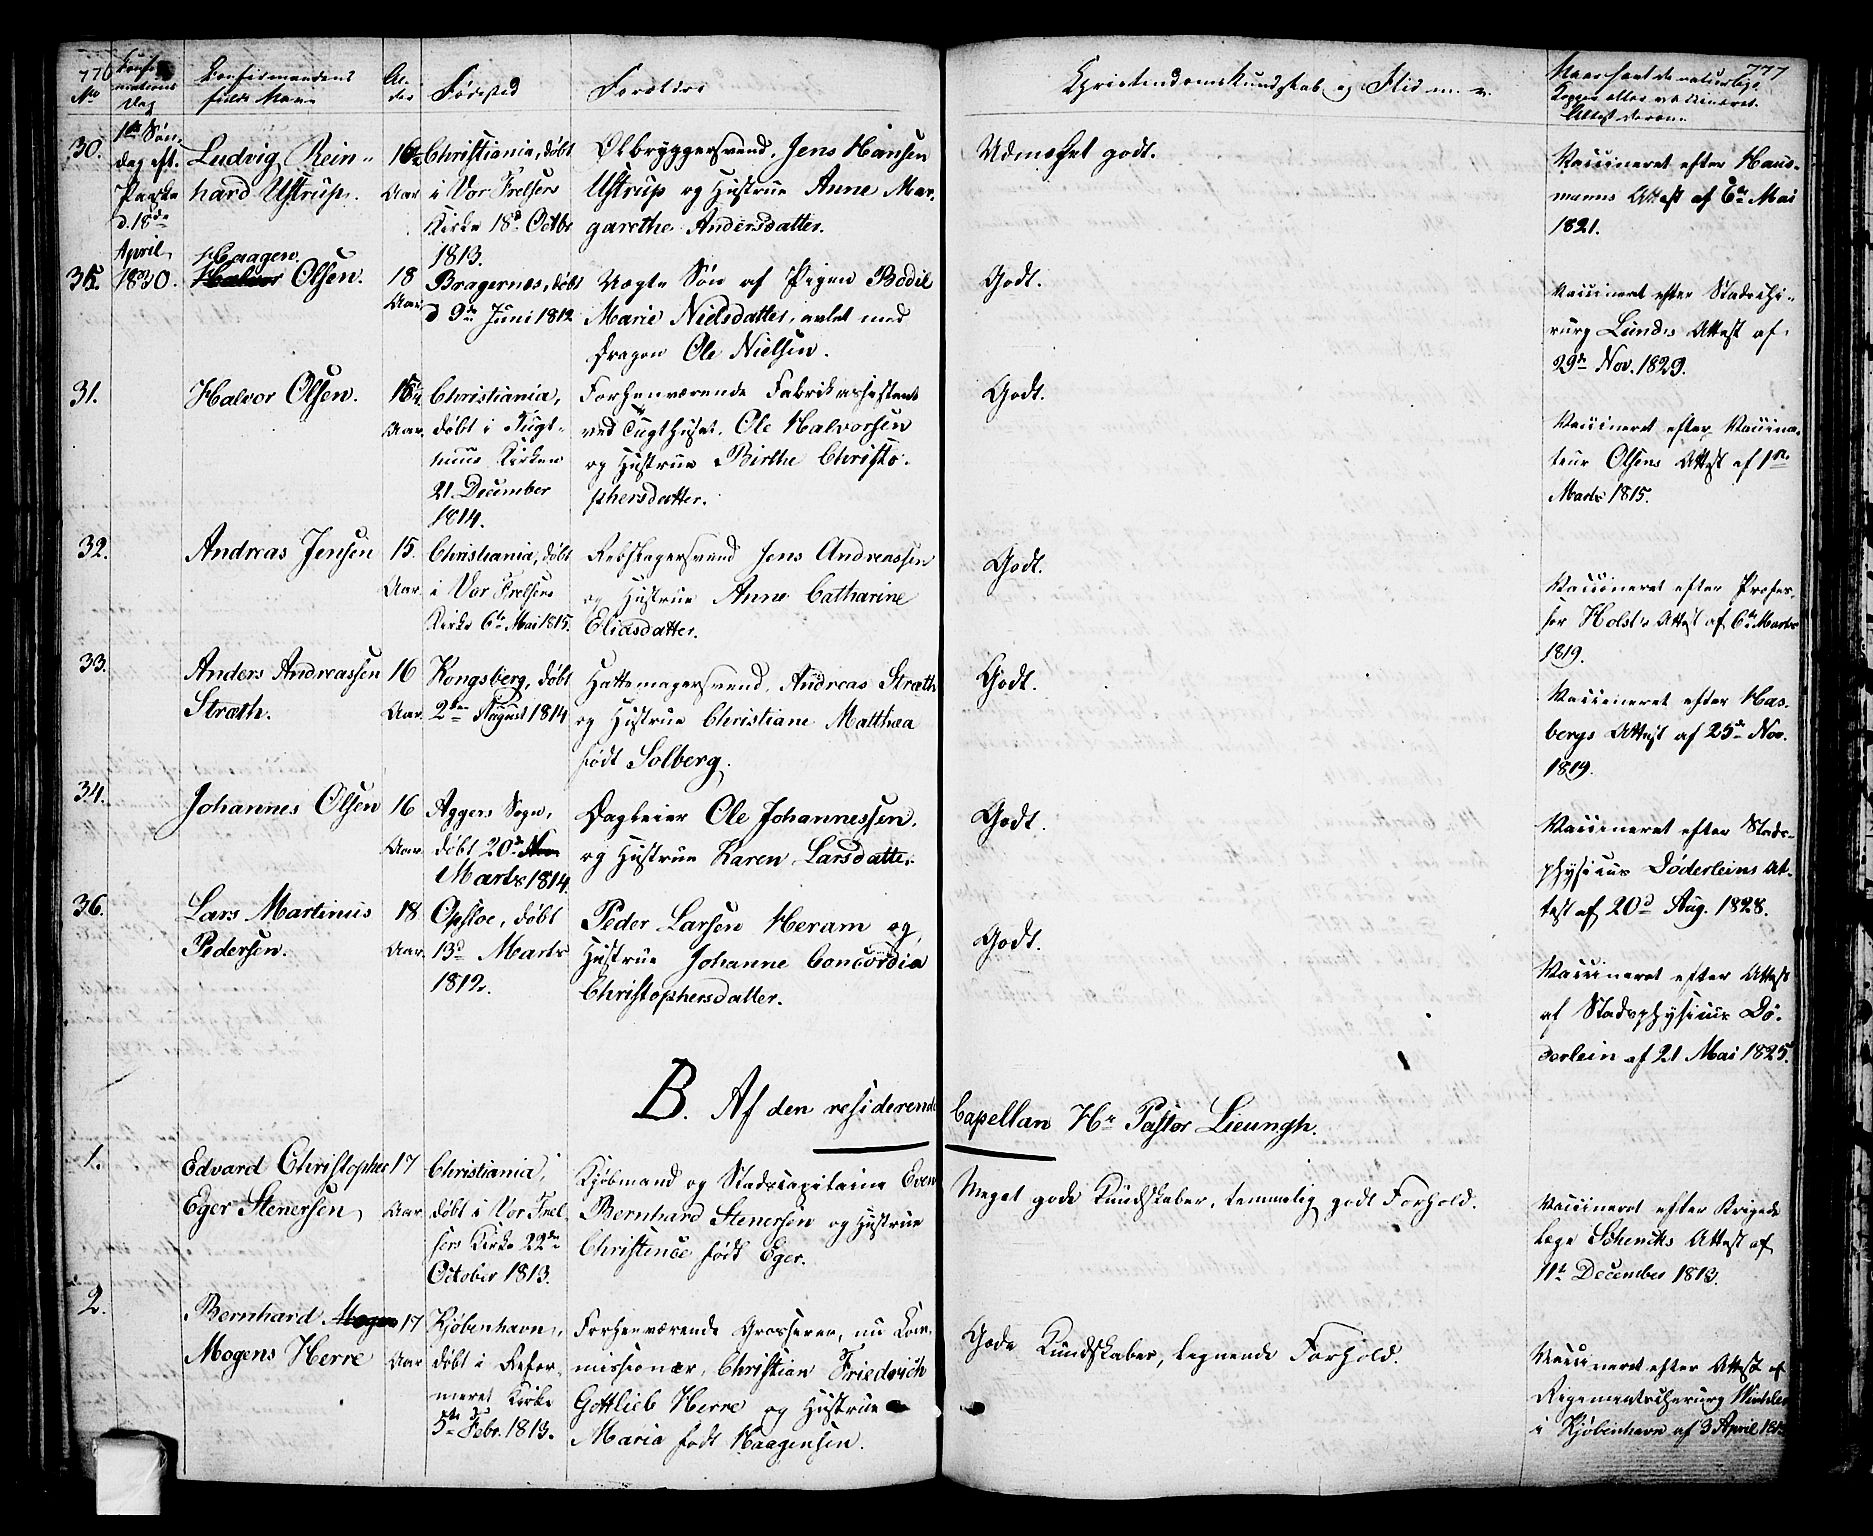 776
No
Confirmations Dag
Confirmandens fulde Navn
Alder
Fødested
Forældre
Christendomskundskab og Flid m. v.
777
Naar havt de naturlige
Kopper eller vaccineret.
Attest derom.
30.
1ste Søn-
dag eft.
Paaske
d. 18de
April
1830.
Ludvig Rein-
hard Ustrup.
16½
Aar
Christiania, døbt
i Vor Frelsers
Kirke 18d Octbr
1813.
Ølbryggersvend, Jens Hansen
Ustrup og Hustrue Anne Mar-
garethe Andersdatter.
Udmærket godt.
Vaccineret efter
manns Attest af 6te Mai
1821.
35.
Haagen
Halvor Olsen.
18
Aar
Bragernes, døbt
d 9de Juni 1812
Uægte Søn af Pigen Bodil
Marie Nielsdatter, avlet med
Dragon Ole Nielsen.
Godt.
Vaccineret efter Stadschi-
rurg Lunds Attest af
29de Nov. 1829.
31.
Halvor Olsen.
15½
Aar.
Christiania,
døbt i Tugt-
huus Kirken
21. December
1814.
Forhenværende Fabrikassistent
ved Tugthuset, Ole Halvorsen
og Hustrue Birthe Christo-
phersdatter.
Godt.
Vaccineret efter Vaccina-
teur Olsens Attest af 1ste
Marts 1815.
32.
Andreas Jensen
15.
Aar.
Christiania, døbt
i Vor Frelsers
Kirke 6te Mai 1815.
Rebslagersvend Jens Andreassen
og Hustrue Anne Catharine
Eliasdatter.
Godt.
Vaccineret efter Profes-
sor Holst's Attest af 6te Marts
1819.
33.
Anders Andreassen
Stræth.
16
Aar.
Kongsberg, døbt
2den August 1814
Hattemagersvend, Andreas Stræth
og Hustrue Christiane Matthea
født Solberg.
Godt.
Vaccineret efter Has-
bergs Attest af 25de Nov.
1819.
34.
Johannes Olsen
16
Aar.
Aggers Sogn,
døbt 20de
Marts 1814.
Dagleier Ole Johannessen,
og Hustrue Karen Larsdatter.
Godt.
Vaccineret efter Stads-
physicus Døderleins At-
test af 20d Aug. 1828.
36.
Lars Martinus
Pedersen.
18
Aar.
Opsloe, døbt
13d Marts
1812.
Peder Larsen Heram og
Hustrue Johanne Concordia
Christophersdatter.
Godt.
Vaccineret efter Attest
af Stadsphysicus Dø-
derlein af 21 Mai 1825.
B. Af den residerende Capellan Hr Pastor Lieungh.
1.
Edvard Christopher
Eger Stenersen
17
Aar.
Christiania,
døbt i Vor Frel-
sers Kirke 22de
October 1813.
Kjøbmand og Stadscapitaine Even
Bernhard Stenersen og Hustrue
Christence født Eger.
Meget gode Kundskaber, temmelig godt Forhold.
Vaccineret efter Brigade
læge Schencks Attest af
11te December 1813.
2.
Bernhard Mogen
Mogens Herre
17
Aar
Kjøbenhavn,
døbt i Refor-
meret Kirke
5te Febr. 1813.
Forhenværende Grosserer, nu Com-
missionær, Christian Friedrich
Gottlieb Herre og Hustrue
Maria født Haagensen.
Gode Kundskaber, lignende Forhold.
Vaccineret efter Attest af
Regimentschirurg
i Kjøbenhavn af 3 April